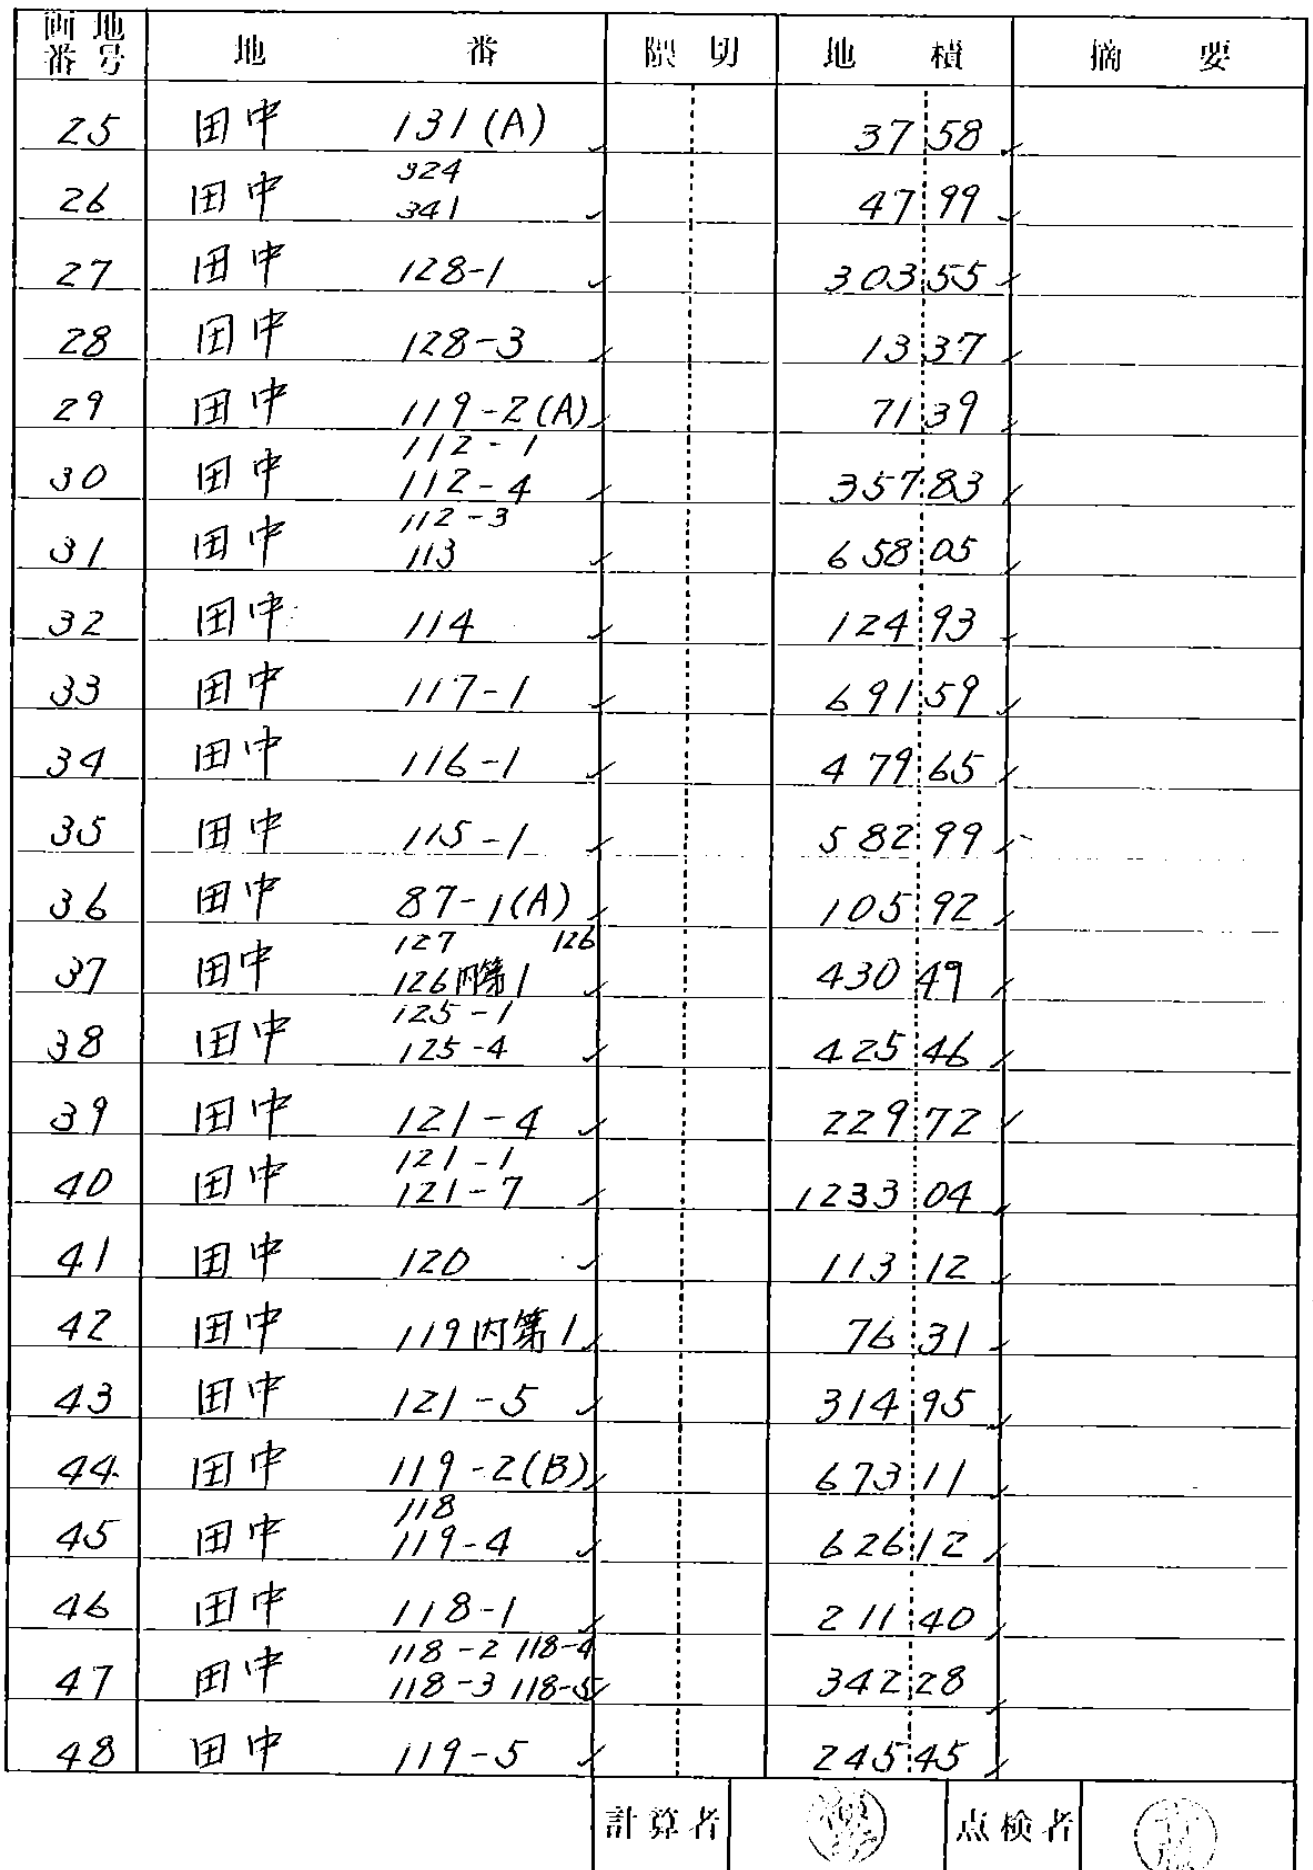 画地番号 地番 隅切 地積 摘要
25 田中 131(A) 37 58
26 田中 324 341 47 99
27 田中 128-1 303 55
28 田中 128-3 13 37
29 田中 119-2(A) 71 39
30 田中 112-1 112-4 357 83
31 田中 112-3 113 658 05
32 田中 114 124 93
33 田中 117-1 691 59
34 田中 116-1 479 65
35 田中 115-1 582 99
36 田中 87-1(A) 105 92
37 田中 127 126 126内第1 430 49
38 田中 125-1 125-4 425 46
39 田中 121-4 229 72
40 田中 121-1 121-7 1233 04
41 田中 120 113 12
42 田中 119内第1 76 31
43 田中 121-5 314 95
44 田中 119-2(B) 673 11
45 田中 118 119-4 626 12
46 田中 118-1 211 40
47 田中 118-2 118-4 118-3 118-5 342 28
48 田中 119-5 245 45
計算者 点検者